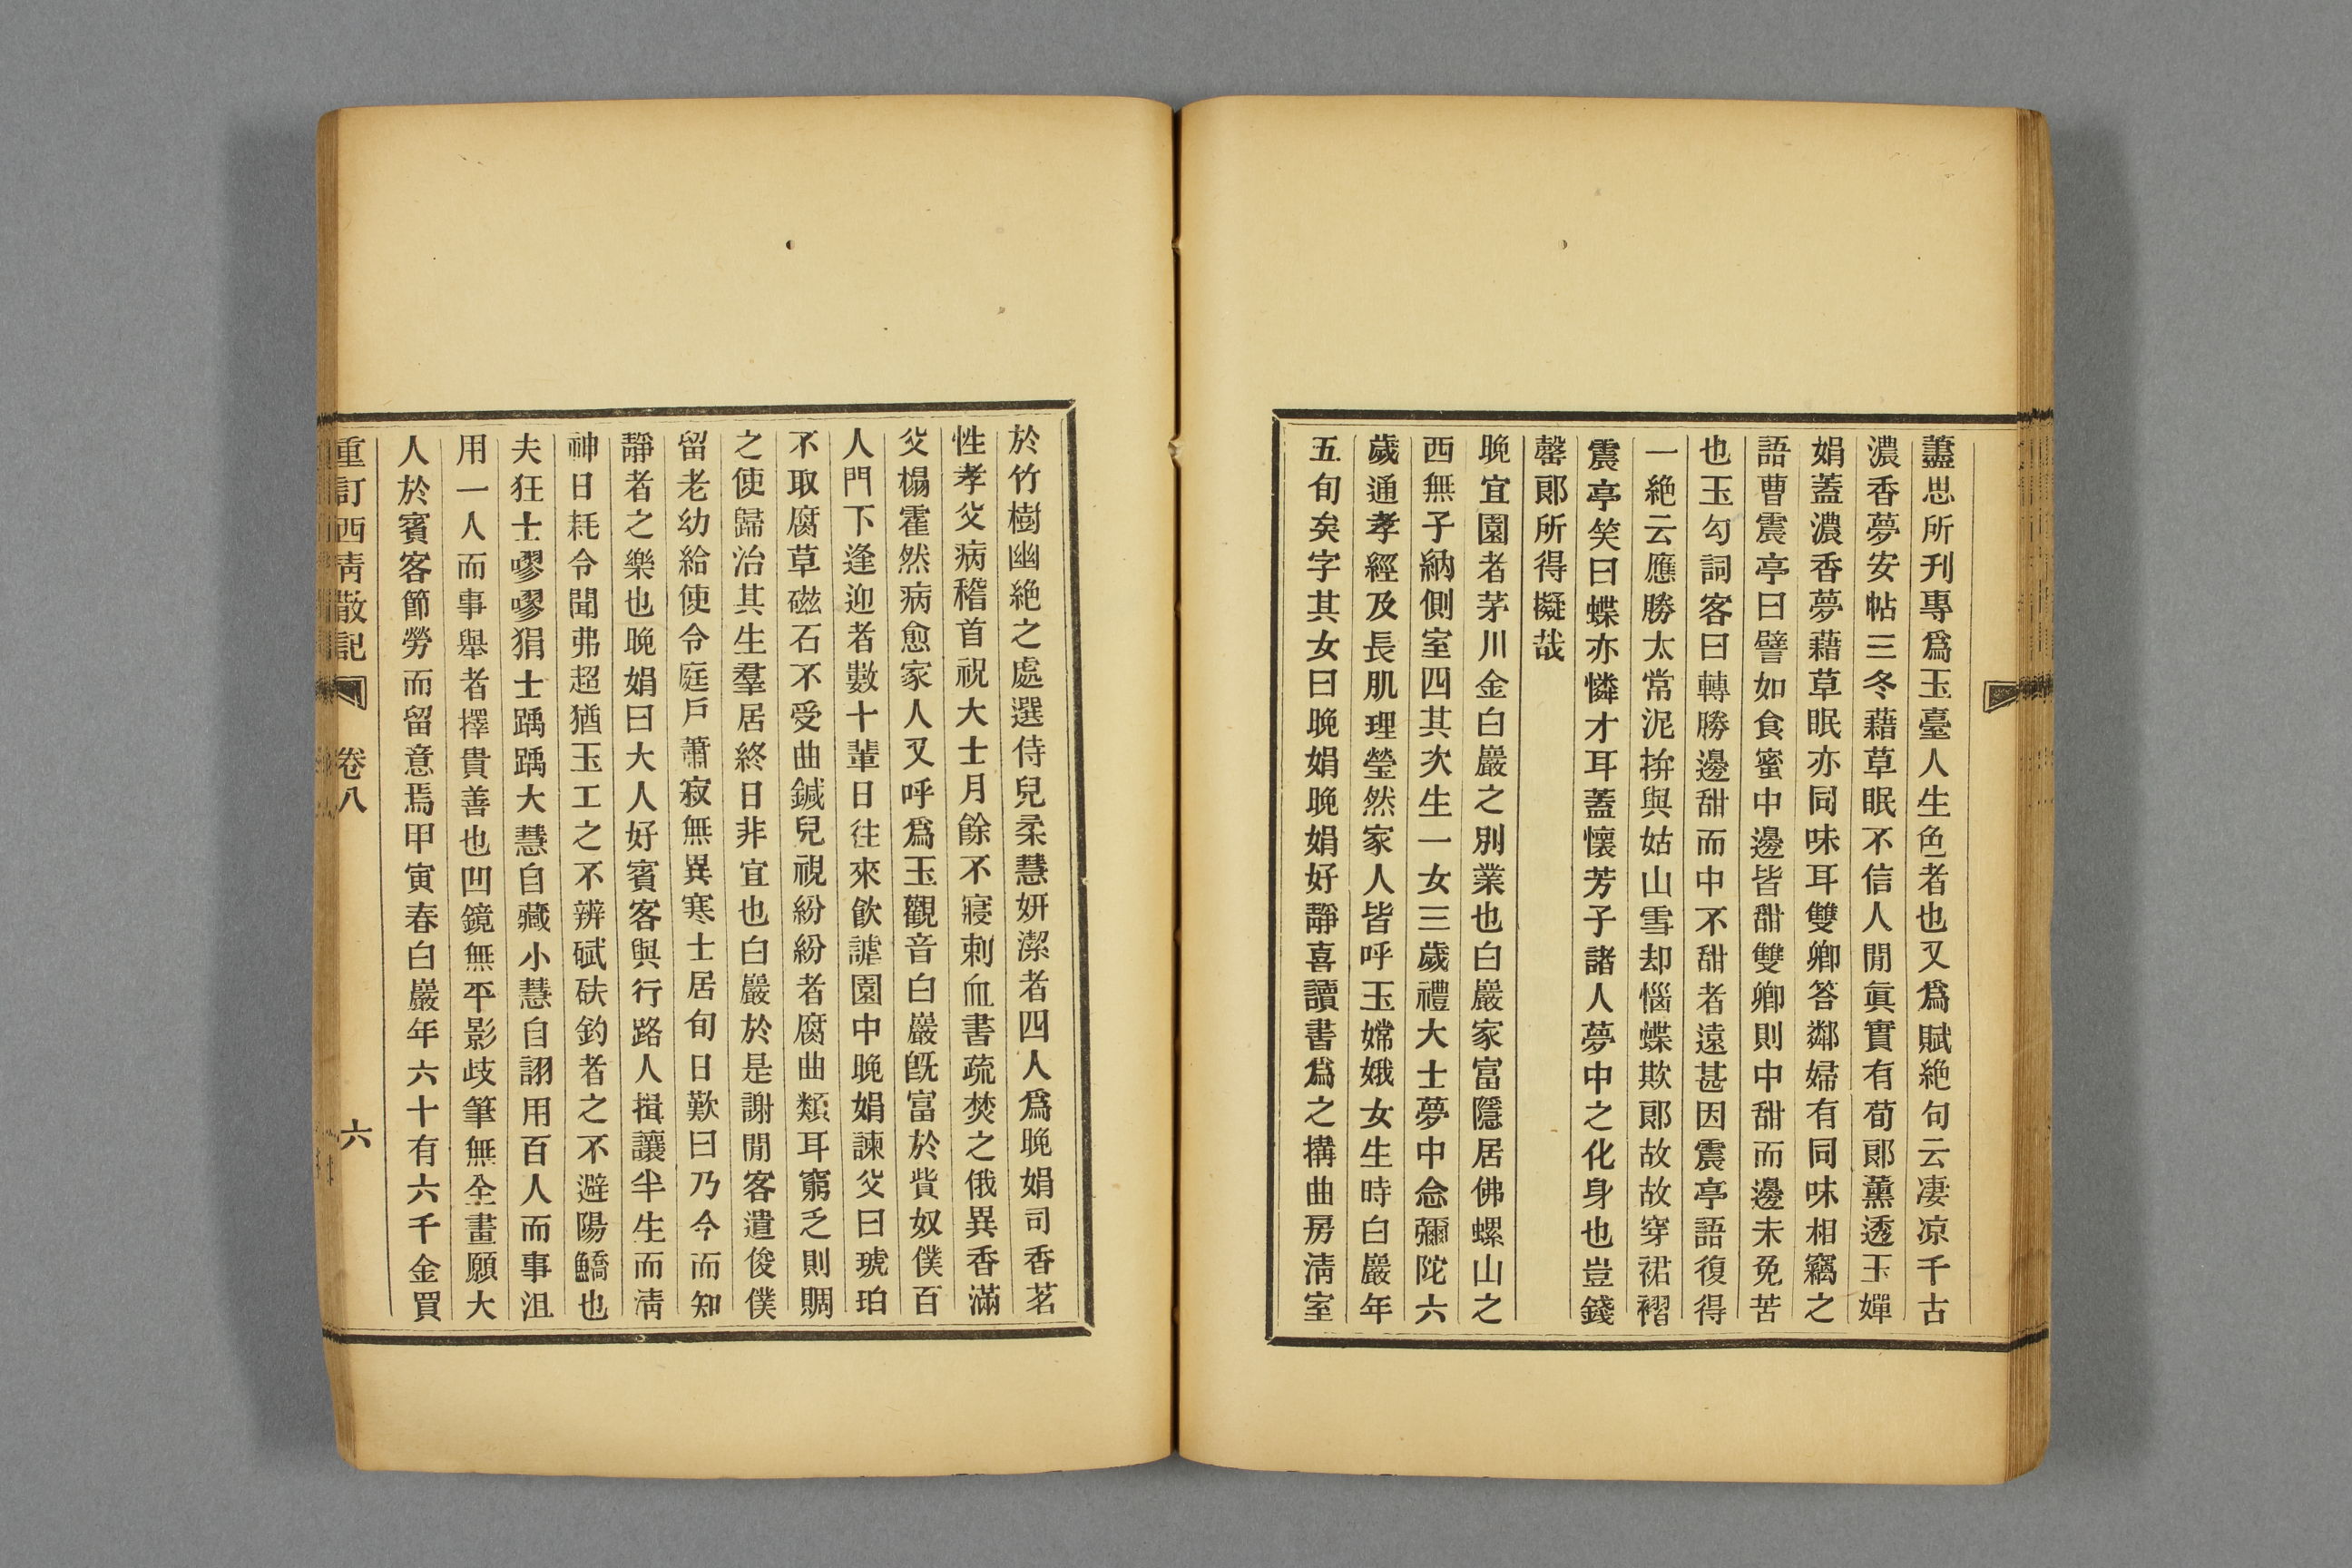 藎思所刊專爲玉臺人生色者也又爲賦絶句云凄凉千古
濃香夢安帖三冬藉草眠不信人閒眞實有荀郞薰透玉嬋
娟蓋濃香夢藉草眠亦同味耳雙卿答鄰婦有同味相竊之
語曹震亭曰譬如食蜜中邊皆甜雙卿則中甜而邊未免苦
也玉勾詞客曰轉勝邊甜而中不甜者遠甚因震亭語復得
一絶云應勝太常泥拚與姑山雪却惱蝶欺郞故故穿裙褶
震亭笑曰蝶亦憐才耳蓋懷芳子諸人夢中之化身也豈錢
罄郞所得擬哉
晚宜園者茅川金白巖之別業也白巖家富隱居佛螺山之
西無子納側室四其次生一女三歲禮大士夢中念彌陀六
歲通孝經及長肌理瑩然家人皆呼玉嫦娥女生時白巖年
五旬矣字其女曰晚娟晚娟好靜喜讀書爲之搆曲房淸室
於竹樹幽絶之處選侍兒柔慧妍潔者四人爲晚娟司香茗
性孝父病稽首祝大士月餘不寢刺血書疏焚之俄異香滿
父榻霍然病愈家人又呼爲玉觀音白巖旣富於貲奴僕百
人門下逢迎者數十輩日往來飮謔園中晚娟諫父曰琥珀
不取腐草磁石不受曲鍼兒視紛紛者腐曲類耳窮乏則賙
之使歸治其生羣居終日非宜也白巖於是謝閒客遣俊僕
留老幼給使令庭戶蕭寂無異寒士居旬日歎曰乃今而知
靜者之樂也晚娟曰大人好賓客與行路人揖讓半生而淸
神日耗令聞弗超猶玉工之不辨碔砆釣者之不避陽鱎也
夫狂士嘐嘐狷士踽踽大慧自藏小慧自詡用百人而事沮
用一人而事舉者擇貴善也凹鏡無平影歧筆無全畫願大
人於賓客節勞而留意焉甲寅春白巖年六十有六千金買
重訂西靑散記 卷八 六